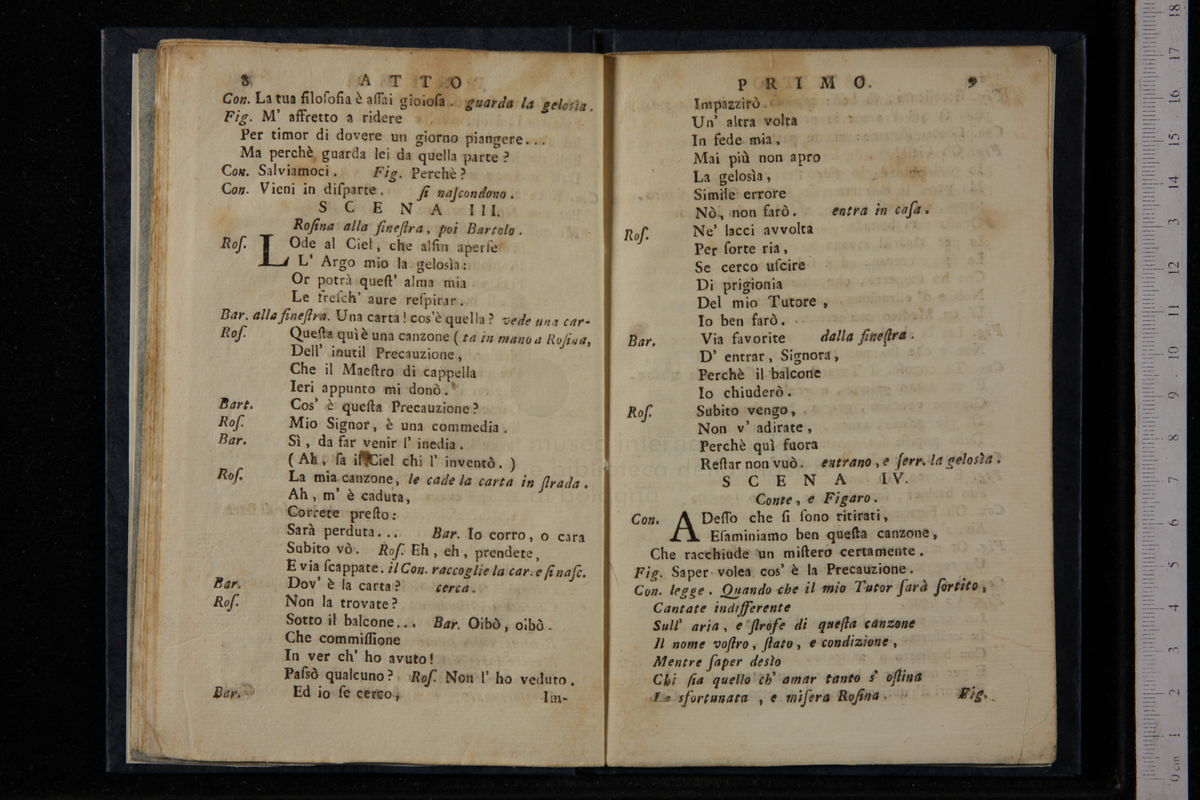 8 ATTO
Con. La tua filoſofia è aſſai gioioſa. guarda la gelosìa.
Fig. M' affretto a ridere
Per timor di dovere un giorno piangere...
Ma perchè guarda lei da quella parte?
Con. Salviamoci. Fig. Perchè?
Con. Vieni in diſparte. ſi naſcondono.
SCENA III.
Roſina alla fineſtra, poi Bartolo.
Roſ. LOde al Ciel, che alfin aperſe
L' Argo mio la gelosìa:
Or potrà queſt' alma mia
Le freſch' aure reſpirar.
Bar. alla fineſtra. Una carta! cos'è quella? vede una car-
Roſ. Queſta quì è una canzone (ta in mano a Roſina,
Dell' inutil Precauzione,
Che il Maeſtro di cappella
Ieri appunto mi donò.
Bart. Cos' è queſta Precauzione?
Roſ. Mio Signor, è una commedia.
Bar. Sì, da far venir l' inedia.
(Ah, ſa il Ciel chi l' inventò.)
Roſ. La mia canzone, le cade la carta in ſtrada.
Ah, m' è caduta,
Correte preſto:
Sarà perduta... Bar. Io corro, o cara
Subito vò. Roſ. Eh, eh, prendete,
E via ſcappate. il Con. raccoglie la car. e ſi naſc.
Bar. Dov' è la carta? cerca.
Roſ. Non la trovate?
Sotto il balcone... Bar. Oibò, oibò.
Che commiſſione
In ver ch' ho avuto!
Paſsò qualcuno? Roſ. Non l' ho veduto.
Bar. Ed io ſe cerco,
Im-
PRIMO. 9
Impazzirò.
Un' altra volta
In fede mia,
Mai più non apro
La gelosìa,
Simile errore
Nò, non farò. entra in caſa.
Roſ. Ne' lacci avvolta
Per ſorte ria,
Se cerco uſcire
Di prigionia
Del mio Tutore,
Io ben farò.
Bar. Via favorite dalla fineſtra.
D' entrar, Signora,
Perchè il balcone
Io chiuderò.
Roſ. Subito vengo,
Non v' adirate,
Perchè quì fuora
Reſtar non vuò. entrano, e ſerr. la gelosìa.
SCENA IV.
Conte, e Figaro.
Con. ADeſſo che ſi ſono ritirati,
Eſaminiamo ben queſta canzone,
Che racchiude un miſtero certamente.
Fig. Saper volea cos' è la Precauzione.
Con. legge. Quando che il mio Tutor ſarà ſortito,
Cantate indifferente
Sull' aria, e ſtrofe di queſta canzone
Il nome voſtro, ſtato, e condizione,
Mentre ſaper desìo
Chi ſia quello ch' amar tanto s' oſtina
La sfortunata, e miſera Roſina.
Fig.